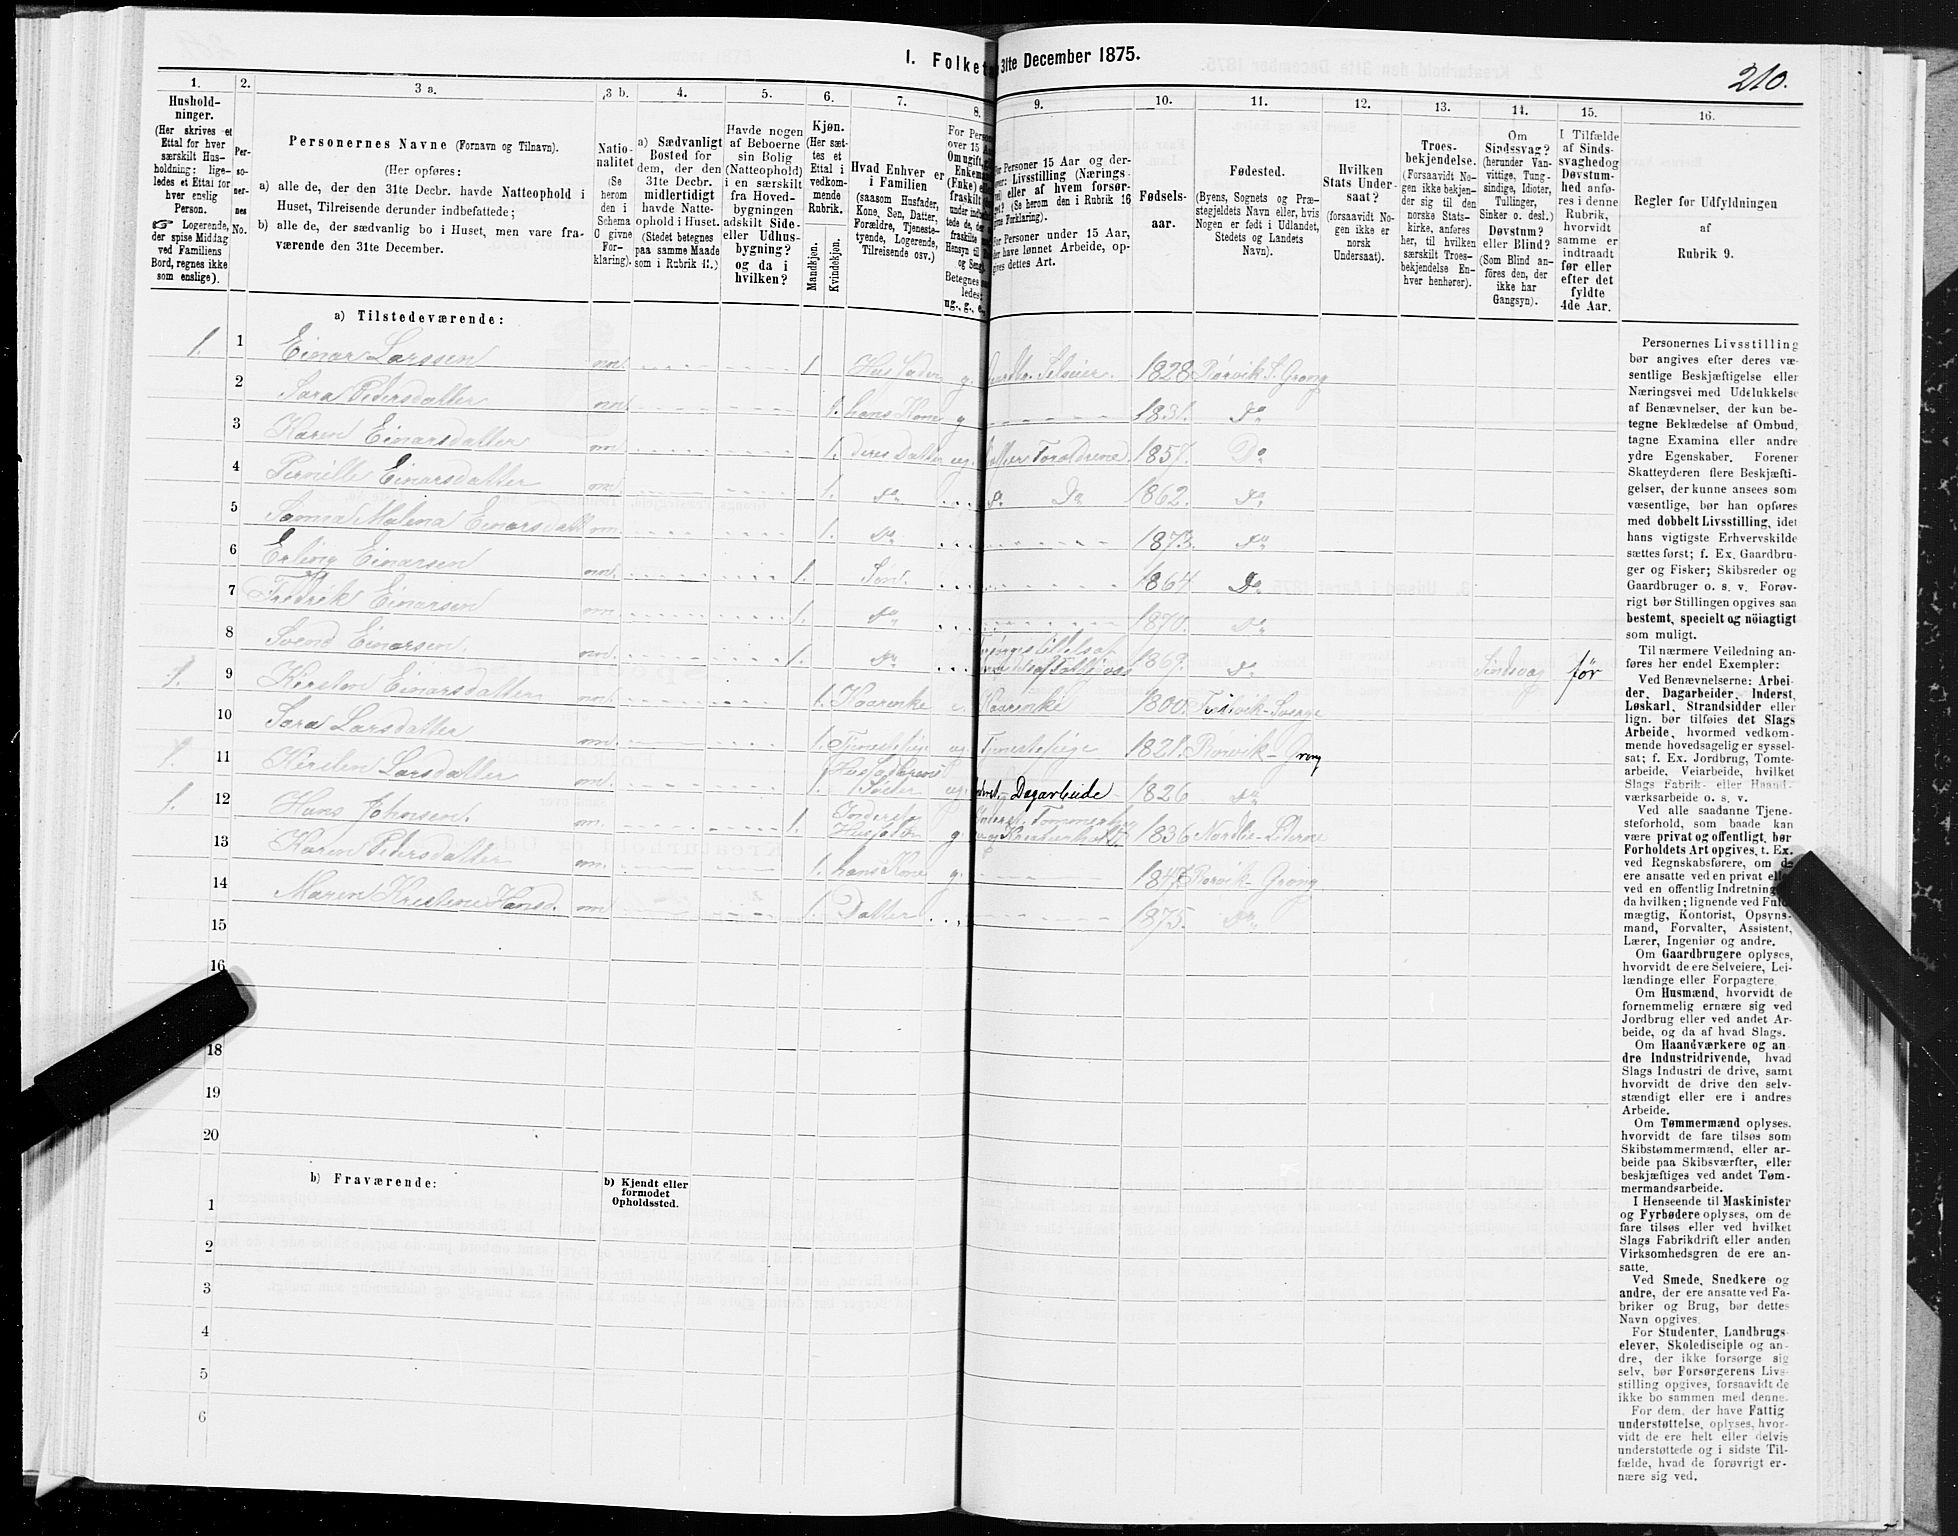 I. Folket
31te December 1875.
210.
1.
Hushold-
ninger.
(Her skrives et
Ettal for hver
særskilt Hus-
holdning; lige-
ledes et Ettal for
hver enslig
Person.
Logerende,
der spise Middag
ved Familiens
Bord, regnes ikke
som enslige).
2.
Per-
so-
ner-
nes
No.
3 a.
Personernes Navne (Fornavn og Tilnavn).
(Her opføres:
a) alle de, der den 31te Decbr. havde Natteophold i
Huset, Tilreisende derunder indbefattede;
b) alle de, der sædvanlig bo i Huset, men vare fra-
værende den 31te December.
3 b.
Natio-
nalitet
(Se
herom
den i
Schema
O givne
For-
klaring).
4.
a) Sædvanligt
Bosted for
dem, der den
31te Decbr.
midlertidigt
havde Natte-
ophold i Huset.
(Stedet betegnes
paa samme Maade
som i Rubrik 11.)
5.
Havde nogen
af Beboerne
sin Bolig
(Natteophold)
i en særskilt
fra Hoved-
bygningen
adskilt Side-
eller Udhus-
bygning?
og da i
hvilken?
6.
Kjøn.
(Her sæt-
tes et
Ettal i
vedkom-
mende
Rubrik.
Mandkjøn.
Kvindekjøn.
7.
Hvad Enhver er
i Familien
(saasom Husfader,
Kone, Søn, Datter,
Forældre, Tjeneste-
tyende, Logerende,
Tilreisende osv.)
8.
For Perso
over 15 Aa
9.
For Personer 15 Aar og der-
over: Livsstilling (Nærings-
vei) eller af hvem forsør-
get? (Se herom den i Rubrik 16
givne Forklaring).
For Personer under 15 Aar,
der have lønnet Arbeide, op-
gives dettes Art.
10.
Fødsels-
aar.
11.
Fødested.
(Byens, Sognets og Præ-
stegjeldets Navn eller, hvis
Nogen er født i Udlandet,
Stedets og Landets
Navn).
12.
Hvilken
Stats Under-
saat?
(forsaavidt No-
gen ikke er
norsk
Undersaat).
13.
Troes-
bekjendelse.
(Forsaavidt No-
gen ikke bekjen-
der sig til den
norske Stats-
kirke, anføres
her, til hvilken
særskilt Troes-
bekjendelse En-
hver henhører).
14.
Om
Sindssvag?
(herunder Van-
vittige, Tung-
sindige, Idioter,
Tullinger,
Sinker o. desl.)
Døvstum?
eller Blind?
(Som Blind an-
føres den, der
ikke har
Gangsyn).
15.
I Tilfælde
af Sinds-
svaghedog
Døvstum-
hed anfø-
res i denne
Rubrik,
hvorvidt
samme er
indtraadt
før eller
efter det
fyldte
4de Aar.
16.
Regler for Udfyldningen
af
Rubrik 9.
a) Tilstedeværende:
1. 1 Einar Larssen nnt. 1. Husfader g. Selveier. 1828 Rørvik S. Grong
2 Sara Pedersdatter nnt. 1. hans Kone g 1831. Do
3 Karen Einarsdatter 1. deres Datter ug. Forældrene 1857. Do
4 Pernille Einarsdatter 1. Do Do 1862. Do
5 Malena Einarsdatt 1. Do 1873. Do
6 Erling Einarsen 1. Søn. 1864 Do
7 Fredrik Einarsen 1. Do 1870. Do
8 Svend Einarsen. 1. Do 1869. Do Sindsvag før
1. 9 Kirsten Einarsdatter 1. Kaarenke e. Kaarenke 1800.
10 Sara Larsdatter 1. Tjenestepige ug. Tjenestepige 1821. Rørvik - Grong
1. 11 Kirsten Larsdatter 1. Søster ug. Dagarbeide 1826 Do
1. 12 Hans Johnsen. 1. Inderst g. 1836 Nordlie - Lierne
13 Karen Pedersdatter 1. hans Kone g. 1847 Rørvik - Grong
14 Maren Kristine Hansd. 1. Datter 1875. Do
15
16
18
19
20
b) Fraværende:
b) Kjendt eller
formodet
Opholdssted.
1
2
3
4
5
6
Personernes Livsstilling
bør angives efter deres væ-
sentlige Beskjæftigelse eller
Næringsvei med Udelukkelse
af Benævnelser, der kun be-
tegne Beklædelse af Ombud,
tagne Examina eller andre
ydre Egenskaber. Forener
Skatteyderen flere Beskjæfti-
gelser, der kunne ansees som
væsentlige, bør han opføres
med dobbelt Livsstilling, idet
hans vigtigste Erhvervskilde
sættes først; f. Ex. Gaardbru-
ger og Fisker; Skibsreder og
Gaardbruger o. s. v. Forøv-
rigt bør Stillingen opgives saa
bestemt, specielt og nöiagtigt
som muligt.
Til nærmere Veiledning an-
føres her endel Exempler:
Ved Benævnelserne: Arbei-
der, Dagarbeider, Inderst,
Løskarl, Strandsidder eller
lign. bør tilføies det Slags
Arbeide, hvormed vedkom-
mende hovedsagelig er syssel-
sat; f. Ex. Jordbrug, Tomte-
arbeide, Veiarbeide, hvilket
Slags Fabrik- eller Haand-
værksarbeide o. s. v.
Ved alle saadanne Tjene-
steforhold, som baade kan
være privat og offentligt, bør
Forholdets Art opgives, t. Ex.
ved Regnskabsførere, om de
ere ansatte ved en privat eller
ved en offentlig Indretning,
da hvilken; lignende ved Fuld-
mægtig, Kontorist, Opsyns-
mand, Forvalter, Assistent,
Lærer, Ingeniør og andre.
Om Gaardbrugere oplyses,
hvorvidt de ere Selveiere, Lei-
lændinge eller Forpagtere.
Om Husmænd, hvorvidt de
fornemmelig ernære sig ved
Jordbrug eller ved andet Ar-
beide, og da af hvad Slags.
Om Haandværkere og an
dre Industridrivende, hvad
Slags Industri de drive, samt
hvorvidt de drive den selv-
stændigt eller ere i andres
Arbeide.
Om Tømmermænd oplyses,
hvorvidt de fare tilsøs som
Skibstømmermænd, eller ar-
beide paa Skibsværfter, eller
beskjæftiges ved andet Tøm-
mermandsarbeide.
I Henseende til Maskinister
og Fyrbødere oplyses, om de
fare tilsøs eller ved hvilket
Slags Fabrikdrift eller anden
Virksomhedsgren de ere an-
satte.
Ved Smede, Snedkere og
andre, der ere ansatte ved Fa-
briker og Brug, bør dettes
Navn opgives.
For Studenter, Landbrugs
elever, Skoledisciple og an-
dre, der ikke forsørge sig
selv, bør Forsørgerens Livs-
stilling opgives, forsaavidt de
ikke bo sammen med denne.
For dem, der have Fattig
understøttelse, oplyses, hvor-
vidt de ere helt eller delvis
understøttede og i sidste Til-
fælde, hvad de forøvrigt er-
nære sig ved.